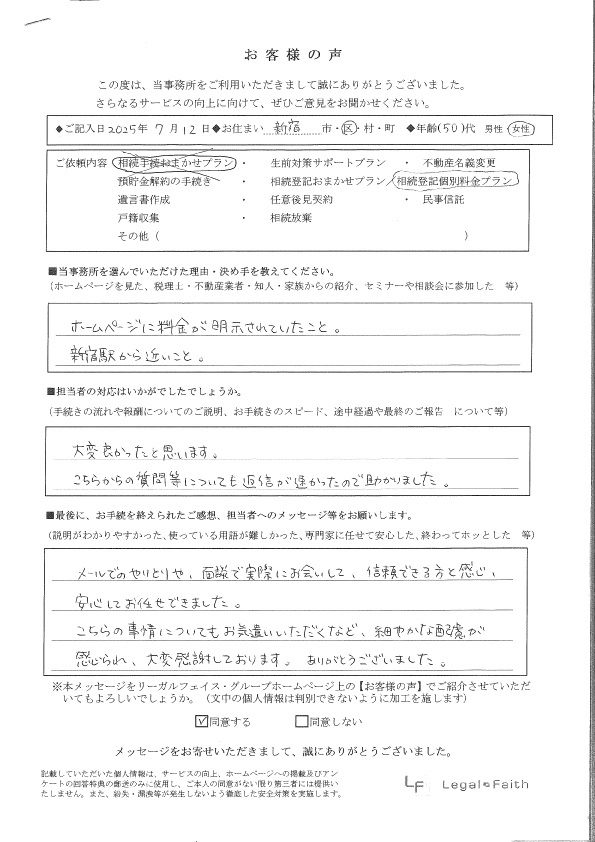 お客様の声
この度は、当事務所をご利用いただきまして誠にありがとうございました。
さらなるサービスの向上に向けて、ぜひご意見をお聞かせください。
◆ご記入日 2025年 7月 12日 ◆お住まい 新宿 市・区・村・町 ◆年齢(50)代 男性・女性
ご依頼内容 相続手続おまかせプラン ・ 生前対策サポートプラン ・ 不動産名義変更
預貯金解約の手続き ・ 相続登記おまかせプラン 相続登記個別料金プラン
遺言書作成 ・ 任意後見契約 ・ 民事信託
戸籍収集 ・ 相続放棄
その他( )
■当事務所を選んでいただけた理由・決め手を教えてください。
(ホームページを見た、税理士・不動産業者・知人・家族からの紹介、セミナーや相談会に参加した 等)
ホームページに料金が明示されていたこと。
新宿駅から近いこと。
■担当者の対応はいかがでしたでしょうか。
(手続きの流れや報酬についてのご説明、お手続きのスピード、途中経過や最終のご報告 について等)
大変良かったと思います。
こちらからの質問等についても返信が速かったので助かりました。
■最後に、お手続を終えられたご感想、担当者へのメッセージ等をお願いします。
(説明がわかりやすかった、使っている用語が難しかった、専門家に任せて安心した、終わってホッとした 等)
メールでのやりとりや、面談で実際にお会いして、信頼できる方と感じ、
安心してお任せできました。
こちらの事情についてもお気遣いいただくなど、細やかな配慮が
感じられ、大変感謝しております。 ありがとうございました。
※本メッセージをリーガルフェイス・グループホームページ上の【お客様の声】でご紹介させていただ
いてもよろしいでしょうか。(文中の個人情報は判別できないように加工を施します)
☑同意する □同意しない
メッセージをお寄せいただきまして、誠にありがとうございました。
記載していただいた個人情報は、サービスの向上、ホームページへの掲載及びアン
ケートの回答特典の郵送のみに使用し、ご本人の同意がない限り第三者には提供い
たしません。また、紛失・漏洩等が発生しないよう徹底した安全対策を実施します。
LF Legal Faith